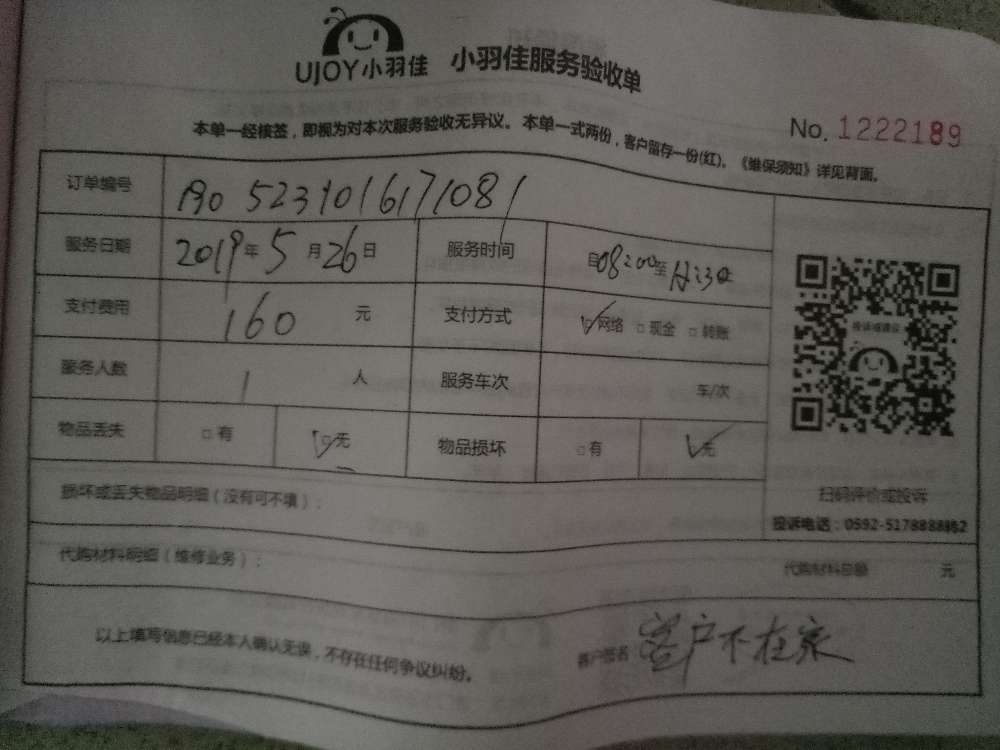 UJOY小羽佳 小羽佳服务验收单
No. 1222189
本单一经核签，即视为对本次服务验收无异议。本单一式两份，客户留存一份(红)。《维保须知》详见背面。
订单编号
服务日期 2019年5月26日 服务时间 自08:00至
支付费用 160 元 支付方式 网络 现金 转账
服务人数 1 人 服务车次 车/次
物品丢失 有 无 物品损坏 有 无
投诉或建议
扫码评价或投诉
投诉电话：0592-5178888
损坏或丢失物品明细（没有可不填）：
代购材料明细（维修业务）： 代购材料总额 元
以上填写信息已经本人确认无误，不存在任何争议纠纷。 客户签名 客户不在家